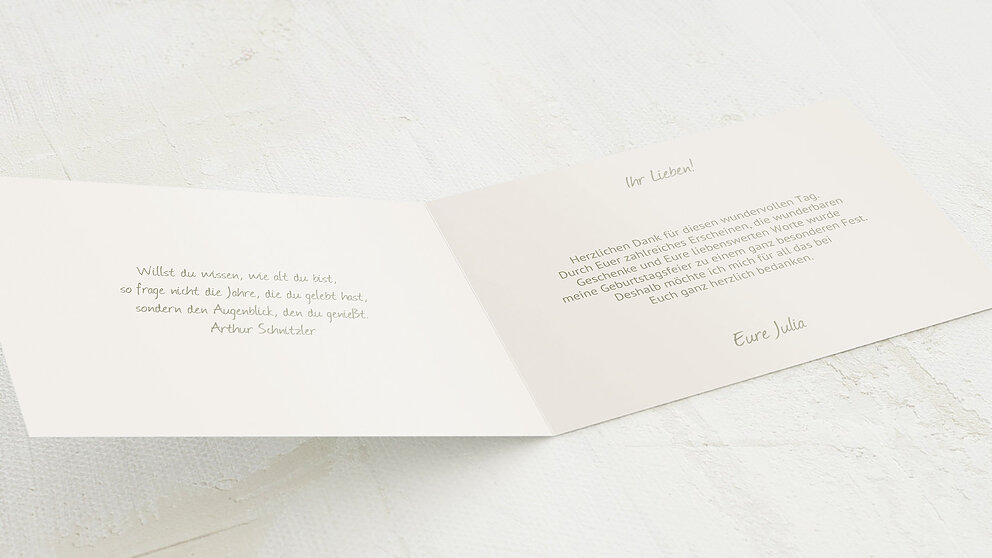 Willst du wissen, wie alt du bist,
so frage nicht die Jahre, die du gelebt hast,
sondern den Augenblick, den du genießt.
Arthur Schnitzler
Ihr Lieben!
Herzlichen Dank für diesen wundervollen Tag.
Durch Euer zahlreiches Erscheinen, die wunderbaren
Geschenke und Eure liebenswerten Worte wurde
meine Geburtstagsfeier zu einem ganz besonderen Fest.
Deshalb möchte ich mich für all das bei
Euch ganz herzlich bedanken.
Eure Julia